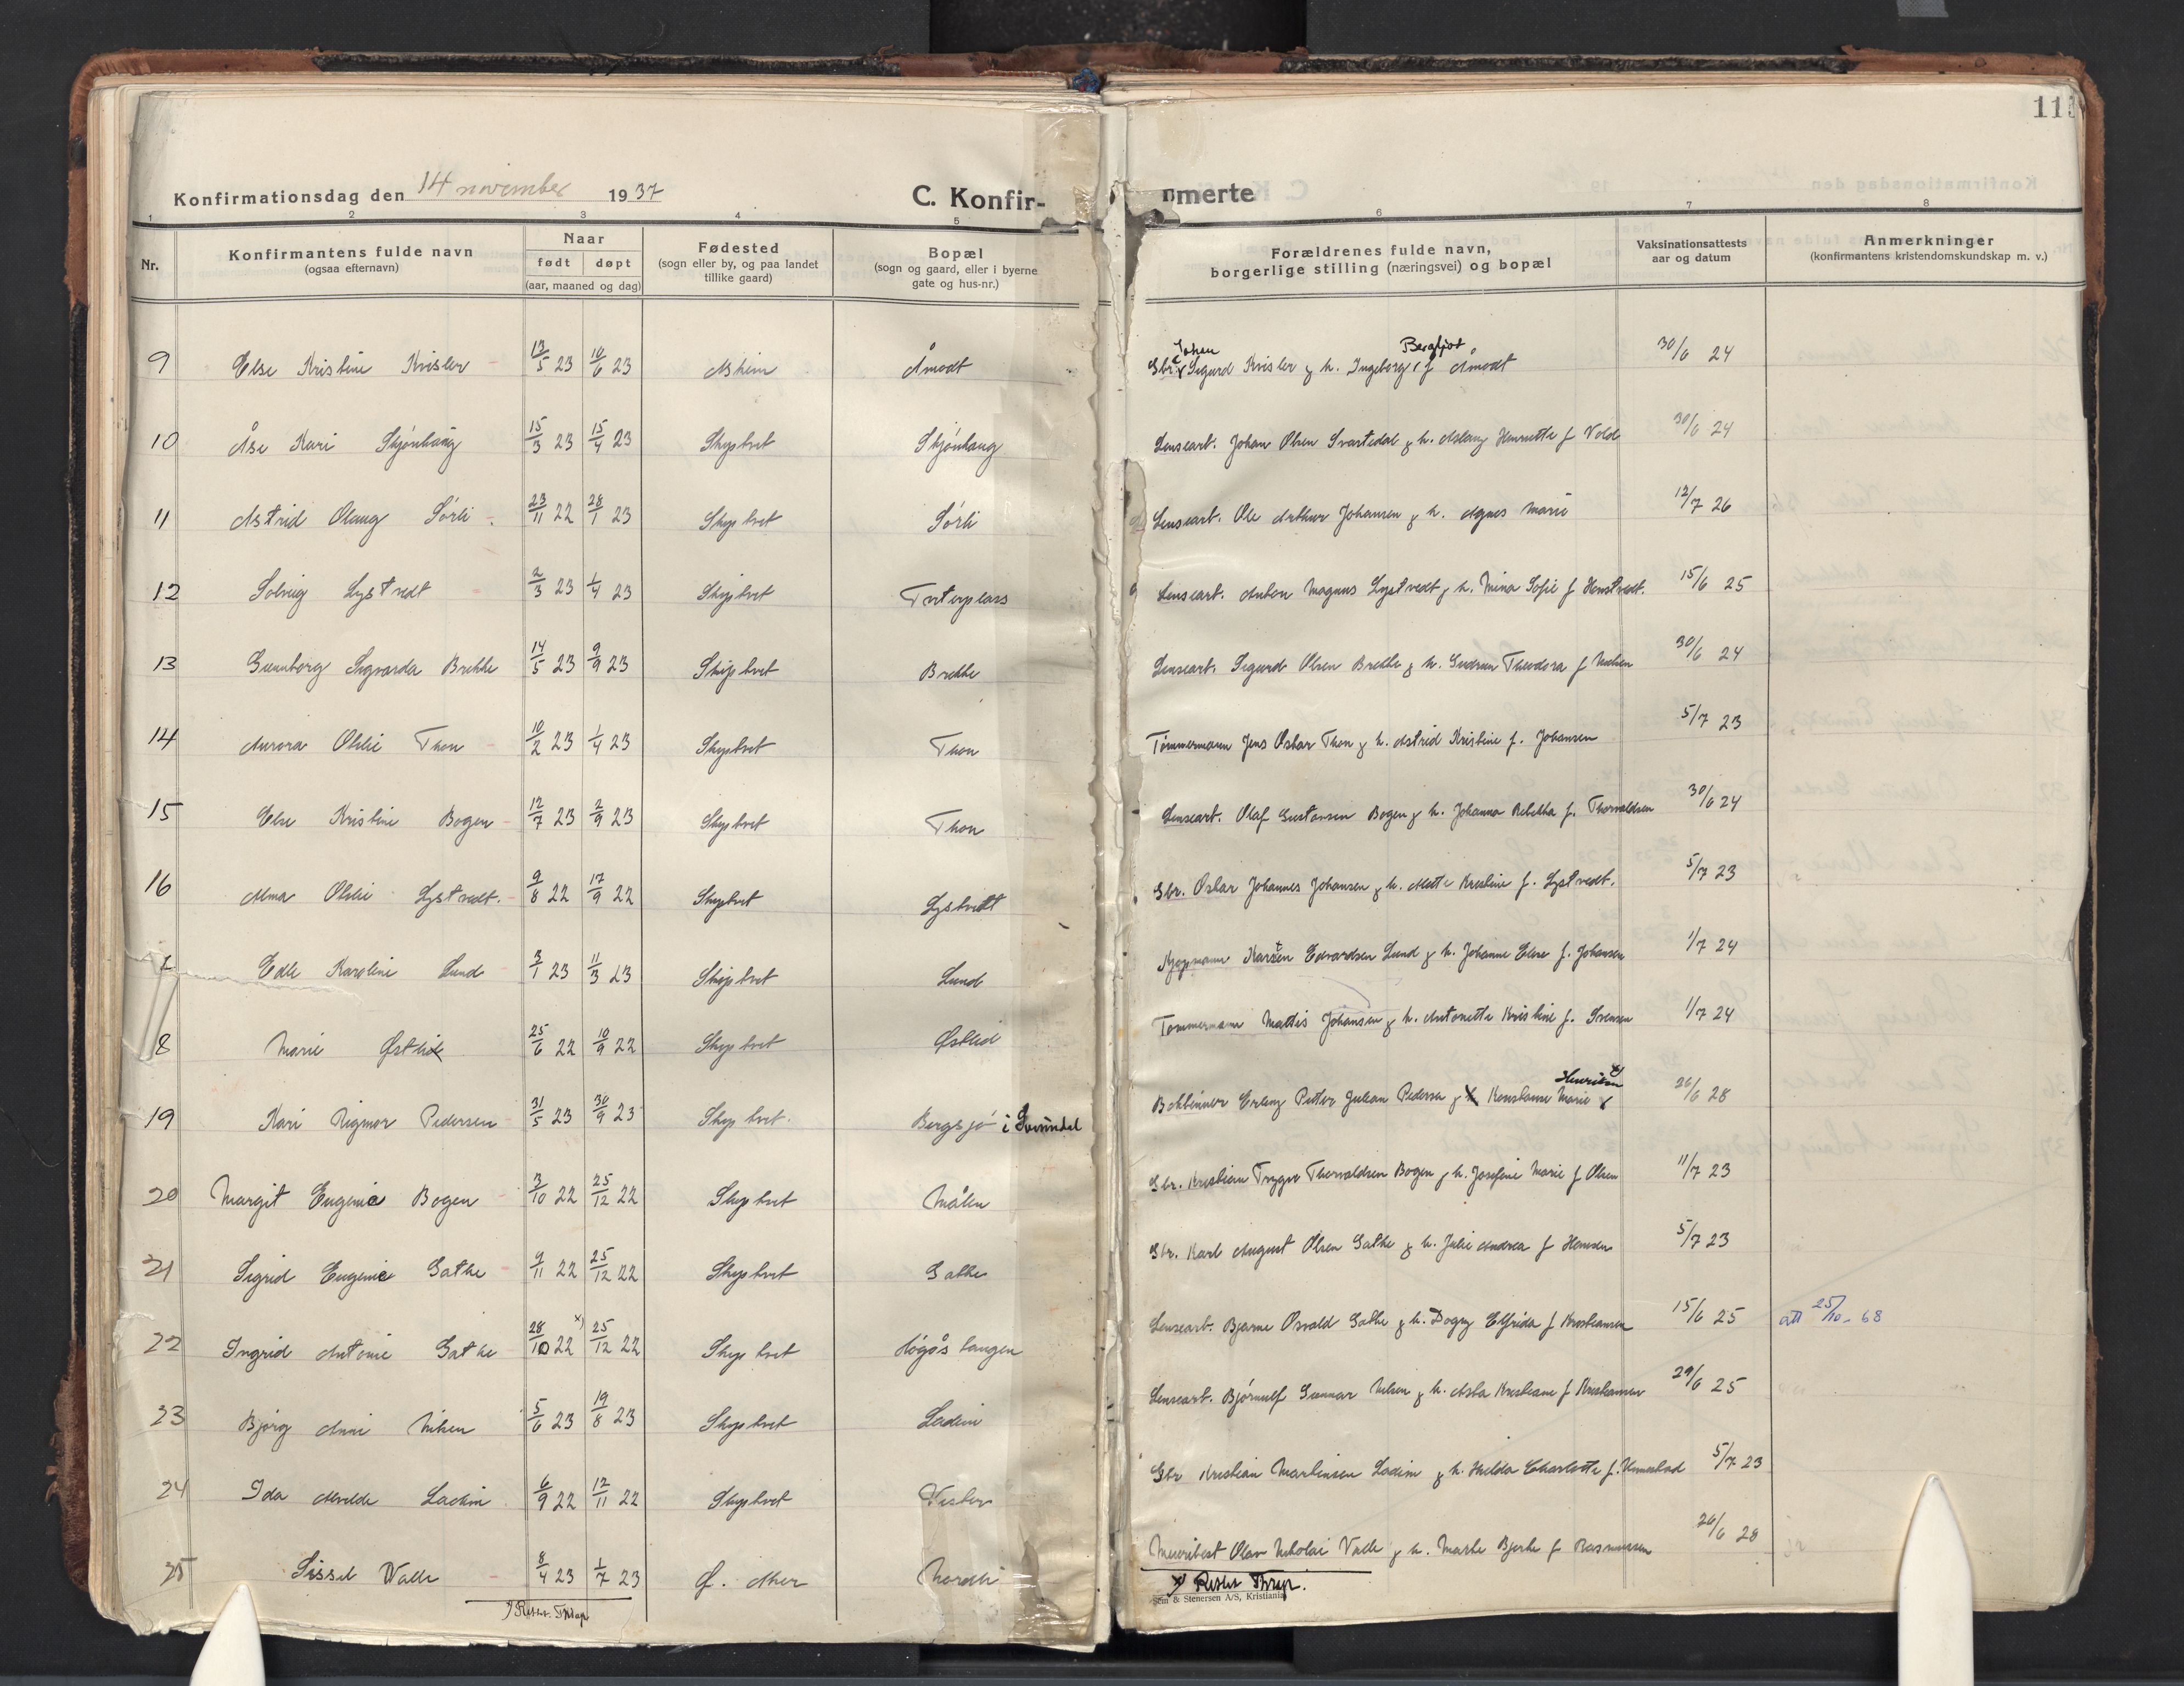 113
Konfirmationsdag den 14 november 1937
C. Konfir- mmerte
1 2 3 4 5 6 7 8
Nr.
Konfirmantens fulde navn
(ogsaa efternavn)
Naar
født døpt
(aar, maaned og dag)
Fødested
(sogn eller by, og paa landet
tillike gaard)
Bopæl
(sogn og gaard, eller i byerne
gate og hus-nr.)
Forældrenes fulde navn,
borgerlige stilling (næringsvei) og bopæl
Vaksinationsattests
aar og datum
Anmerkninger
(konfirmantens kristendomskundskap m. v.)
Johan Bergljot
9 Else Kristine Kvisler 13/5 23 10/6 23 Askim Åmodt Gbr. Sigurd Kvisler & h. Ingeborg f Åmodt 30/6 24
10 Åse Kari Skjønhaug 15/3 23 15/4 23 Skiptvet Skjønhaug Lensearb. Johan Olsen Svartedal & h. Aslaug Henriette f Vold 30/6 24
11 Astrid Olaug Sørli 23/11 22 28/1 23 Skiptvet Sørli Lensearb. Ole Arthur Johansen & h. Agnes Marie 12/7 26
12 Solveig Lystvedt 2/3 23 1/4 23 Skiptvet Lensearb. Anton Magnus Lystvedt & h. Mina Sofie f 15/6 25
13 Gunnborg Sigvarda Brekke 14/5 23 9/9 23 Skiptvet Brekke Lensearb. Sigurd Olsen Brekke & h. Gudrun Theodora f Nielsen 30/6 24
14 Aurora Otilie Thon 10/2 23 1/4 23 Skiptvet Thon Tømmermann Jens Oskar Thon & h. Astrid Kristine f. Johansen 5/7 23
15 Else Kristine Bogen 12/7 23 2/9 23 Skiptvet Thon Lensearb. Olaf Gustavsen Bogen & h. Johanna Rebekka f. Thorvaldsen 30/6 24
16 Alma Otilie Lystvedt. 9/8 22 17/9 22 Skiptvet Lystvedt Gbr. Oskar Johannes Johansen & h. Mette Kristine f. Lystvedt. 5/7 23
Edle Karoline Lund 3/1 23 11/3 23 Skiptvet Lund Kjøpmann Karsten Edvardsen Lund & h. Johanne Elise f. Johansen 1/7 24
8 Marie Østlid 25/6 22 10/9 22 Skiptvet Østlid Tømmermann Mattis Johansen & h. Antonette Kristine f. Svensen 1/7 24
19 Kari Rigmor Pedersen 31/5 23 30/9 23 Skiptvet. Bergsjø i Svinndal Bokbinner Erling Petter Julian Pedersen & Konstanse Marie Henriksen x) 26/6 28
20 Margit Eugenie Bogen 3/10 22 25/12 22 Skiptvet Målen Gbr. Kristian Trygve Thorvaldsen Bogen & h. Josefine Marie f Olsen 11/7 23
21 Sigrid Eugenie Gatke 9/11 22 25/12 22 Skiptvet Gatke Gbr. Karl August Olsen Gatke & h. Julie Andrea f Hansen 5/7 23
22 Ingrid Antonie Gatke 28/10 22 x) 25/12 22 Skiptvet Lensearb. Bjarne Osvald Gatke & h. Dagny Elfrida f Kristiansen 15/6 25 att 25/10-68
23 Bjørg Anni Nilsen 5/6 23 19/8 23 Skiptvet Ladim Lensearb. Bjørnulf Gunnar Nilsen & h. Asta Kristiane f Kristiansen 29/6 25
24 Ida Alvilde Ladim 6/9 22 12/11 22 Skiptvet Gbr Kristian Martinsen Ladim & h. Hulda Charlotte f. 5/7 23
25 Sissel Valle 8/4 23 1/7 23 Ø. Aker Nordli Meieribest Olav Nikolai Valle & h. Marte Bjerke f Rasmussen 26/6 28
x) Rettet. Thrap
x) Rettet Thrap.
Sem & Stenersen A/S, Kristiania